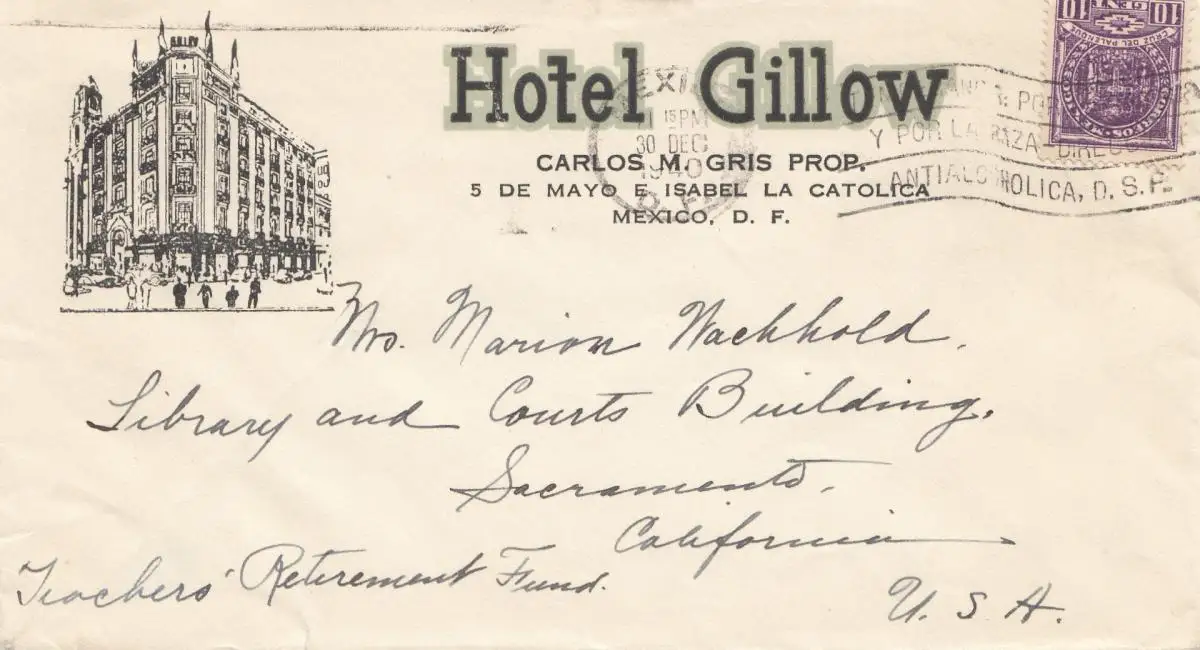 Hotel Gillow
CARLOS M. GRIS PROP.
5 DE MAYO E ISABEL LA CATOLICA
MEXICO, D. F.
MEXI
15 PM
30 DEC
1940
D. F.
Y POR LA RAZA, DIREC
ANTIALCOHOLICA, D. S. P.
10 CENT 10
CRUZ DEL PALENQUE
CORREOS MEXICO
Mrs. Marion Wachhold.
Library and Courts Building.
Sacramento.
California
U. S. A.
Teachers' Retirement Fund.